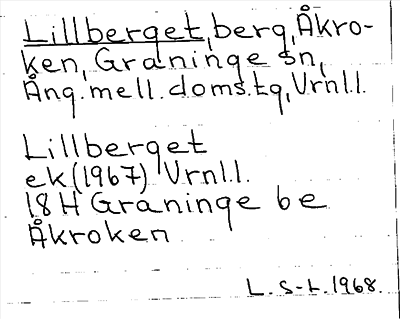 Lillberget, berg, Åkro-
ken, Graninge sn,
Ång. mell. doms. tg, Vrnl.l.
Lillberget
ek (1967) Vrnl.l.
18H Graninge be
Åkroken
L. S-L. 1968.